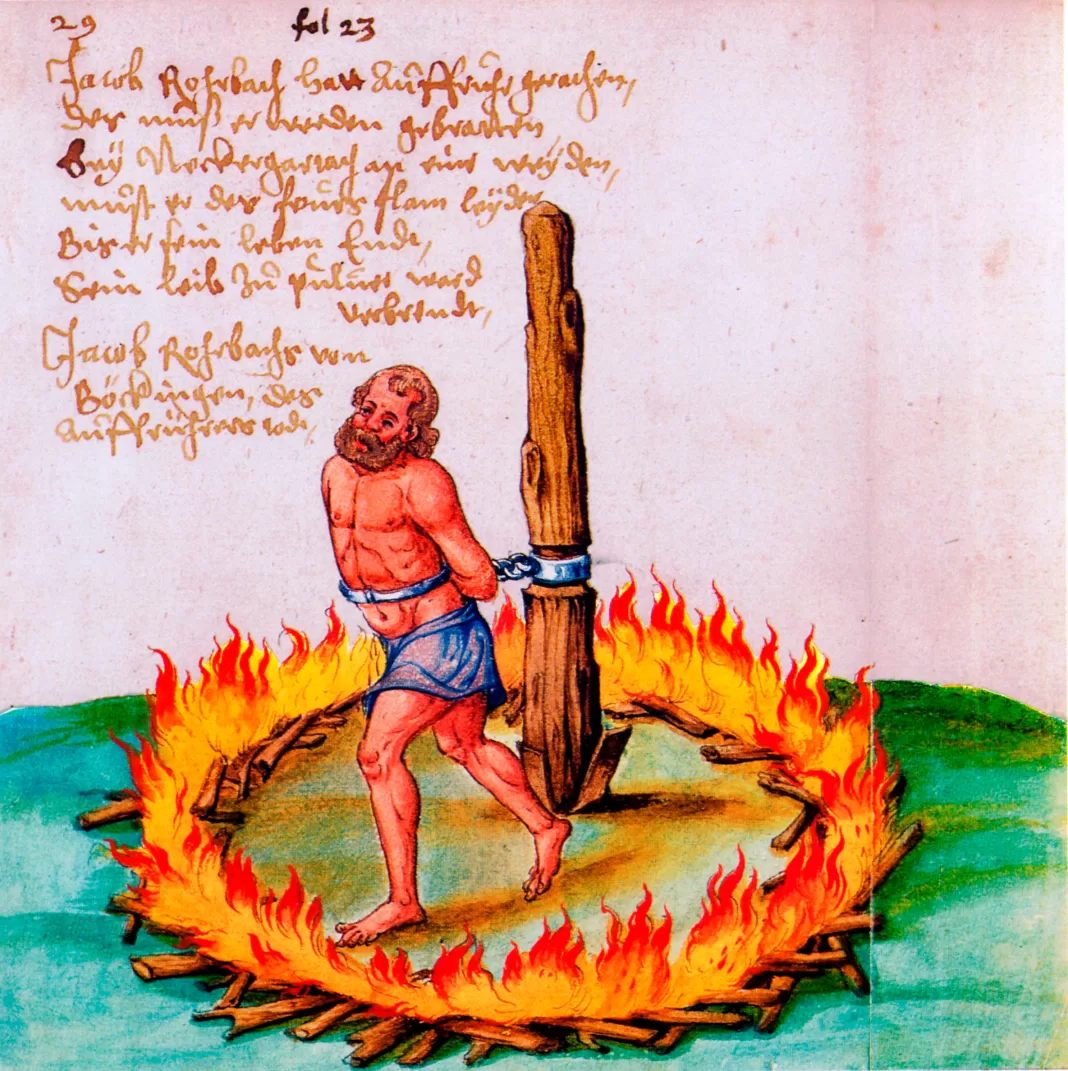 29 fol 23
Jacob Rohrbach hatt Auffruhr gerathen,
Des muß er werden gebratten
Beÿ Neckergartach an eine weÿden,
must er des feurs flam leÿden
Bis er sein leben Endt,
Sein leib zu puluer ward
verbrendt,
Jacob Rohrbachs von
Böckingen, des
Auffrührers todt,